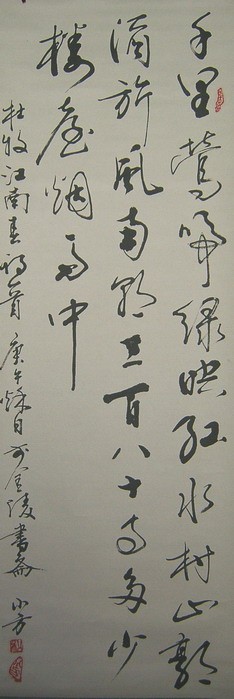 千里莺啼绿映红水村山郭
酒旂风南朝三百八十寺多少
楼台烟雨中
杜牧江南春诗首 庚午秋日于金陵書斋 小方